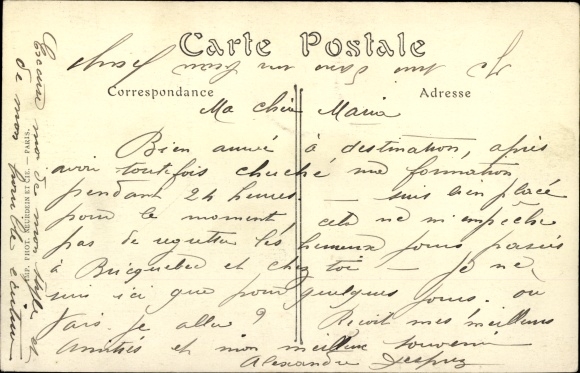 Carte Postale
Correspondance
Adresse
Ma chère Maria
Bien arrivé à destination, après
avoir toutefois cherché ma formation
pendant 24 heures. — suis bien placé
pour le moment, cela ne m'empêche
pas de regretter les heureux jours passés
à Bricquebec et chez toi — je ne
suis ici que pour quelques jours. ou
Vais-je aller ? Reçoit mes meilleurs
amitiés et mon meilleur souvenir
Alexandre Desprez
Excuse moi de mon style et
de mon
IMP. PHOT. NEURDEIN ET CIE. — PARIS.